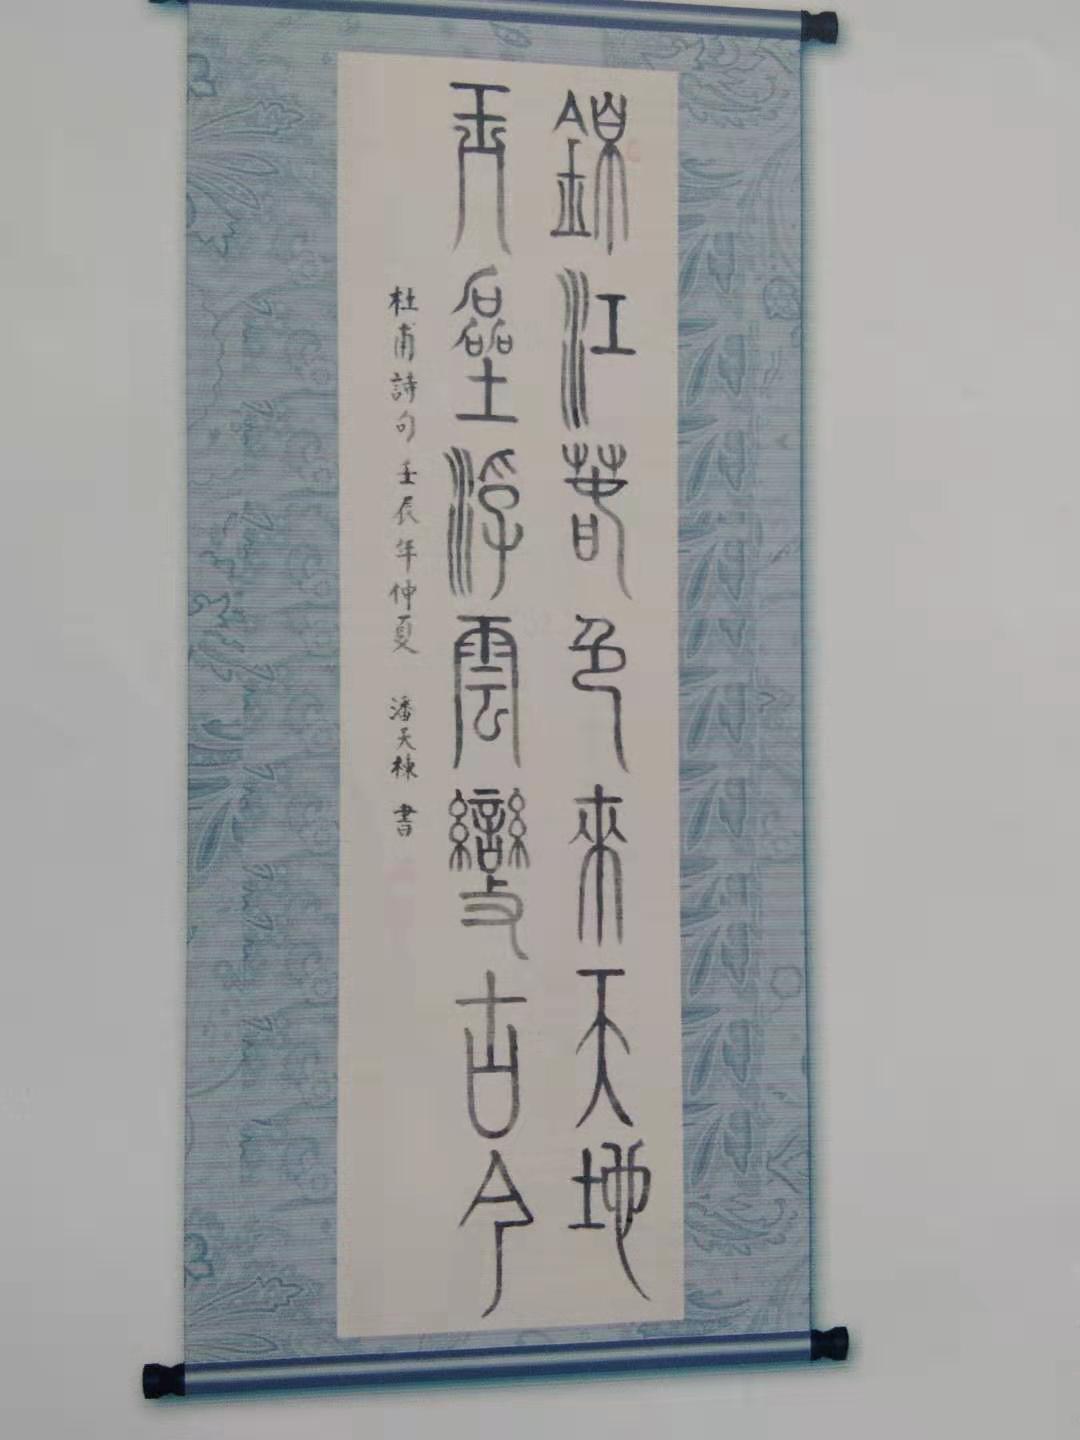 錦江春色來天地
玉壘浮雲變古今
杜甫詩句 壬辰年仲夏 潘天棟 書